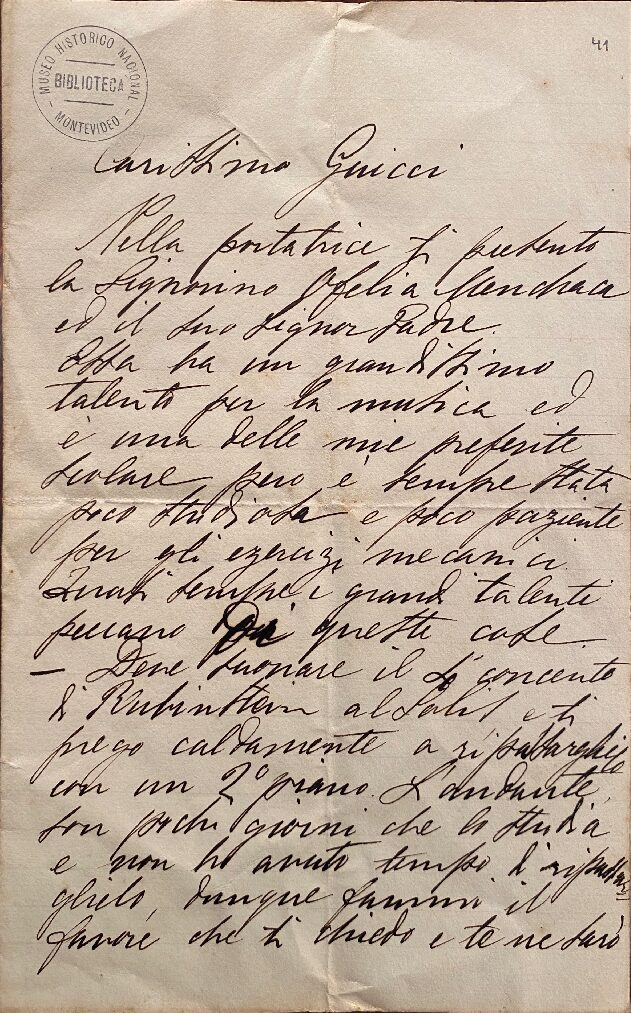 MUSEO HISTORICO NACIONAL
BIBLIOTECA
MONTEVIDEO
41
Carissimo Guicci
Nella portatrice ti presento
la Signorino Ofelia Menchaca
ed il suo Signor Padre.
Essa ha un grandissimo
talento per la musica ed
è una delle mie preferite
scolare però è sempre stata
poco studiosa e poco paziente
per gli esercizi mecanici.
Quasi sempre i grandi talenti
peccano di queste cose.
– Deve suonare il 4º concerto
di Rubinstein al Solis e ti
prego caldamente a ripassarglielo
con un 2º piano. L'andante,
son pochi giorni che lo studia
e non ho avuto tempo di ripassar
glielo, dunque fammi il
favore che ti chiedo e te ne sarò